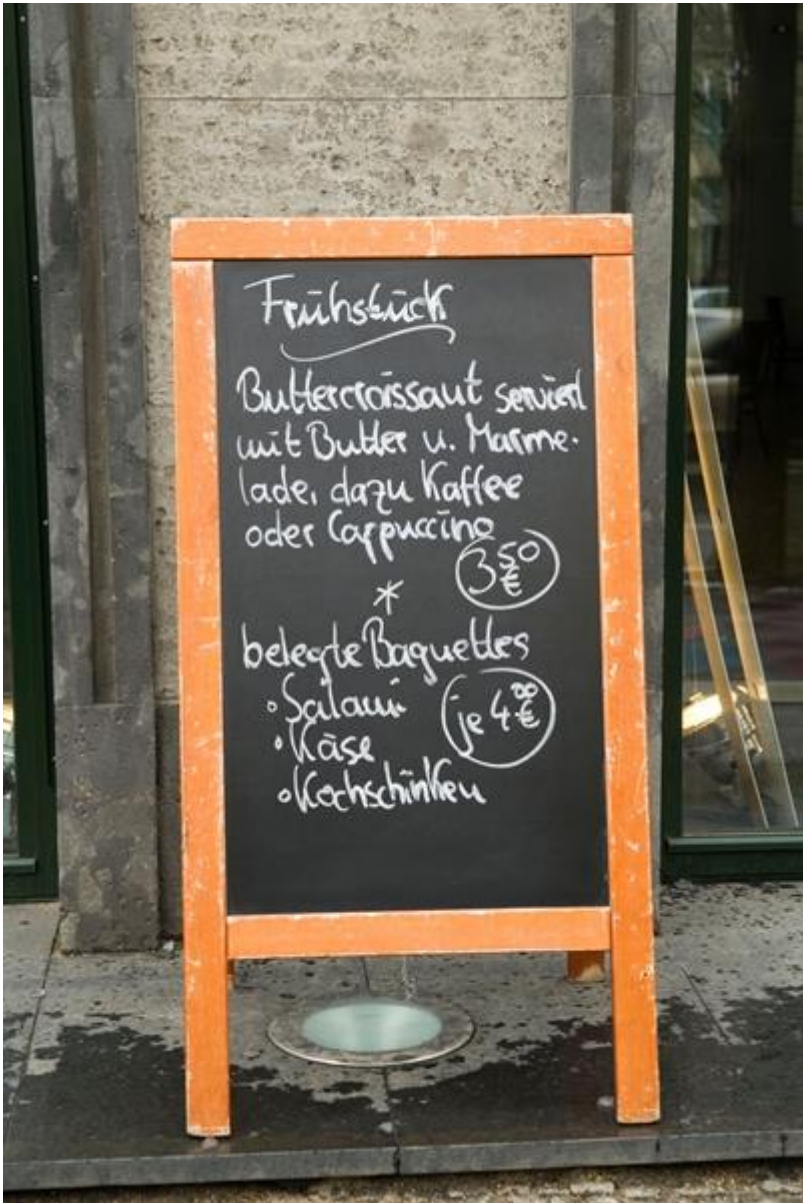 Frühstück
Buttercroissant serviert
mit Butter u. Marme-
lade, dazu Kaffee
oder Cappuccino
3 50 €
*
belegte Baguettes
• Salami
je 4 00 €
• Käse
• Kochschinken